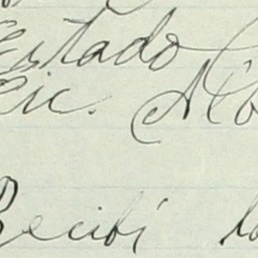 Estado
Lic. Alb
Recibí la